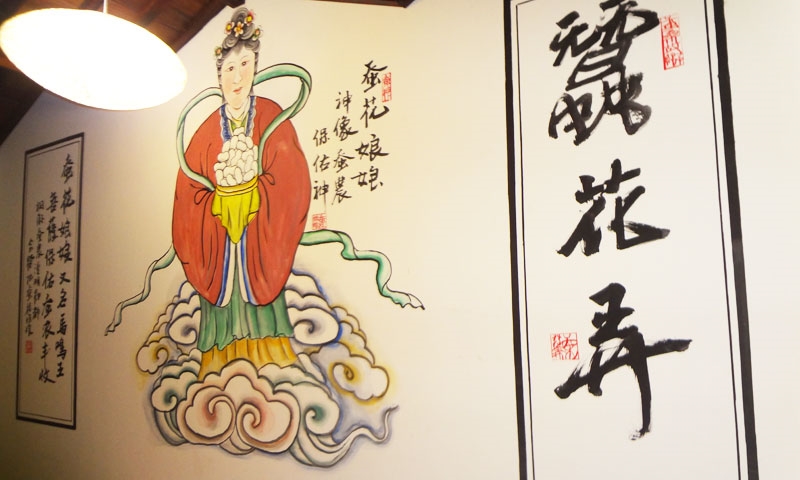 蠶花弄
蚕花娘娘
神像蚕農
保佑神
蚕花娘娘又名馬鳴王
菩薩保佑蚕农丰收